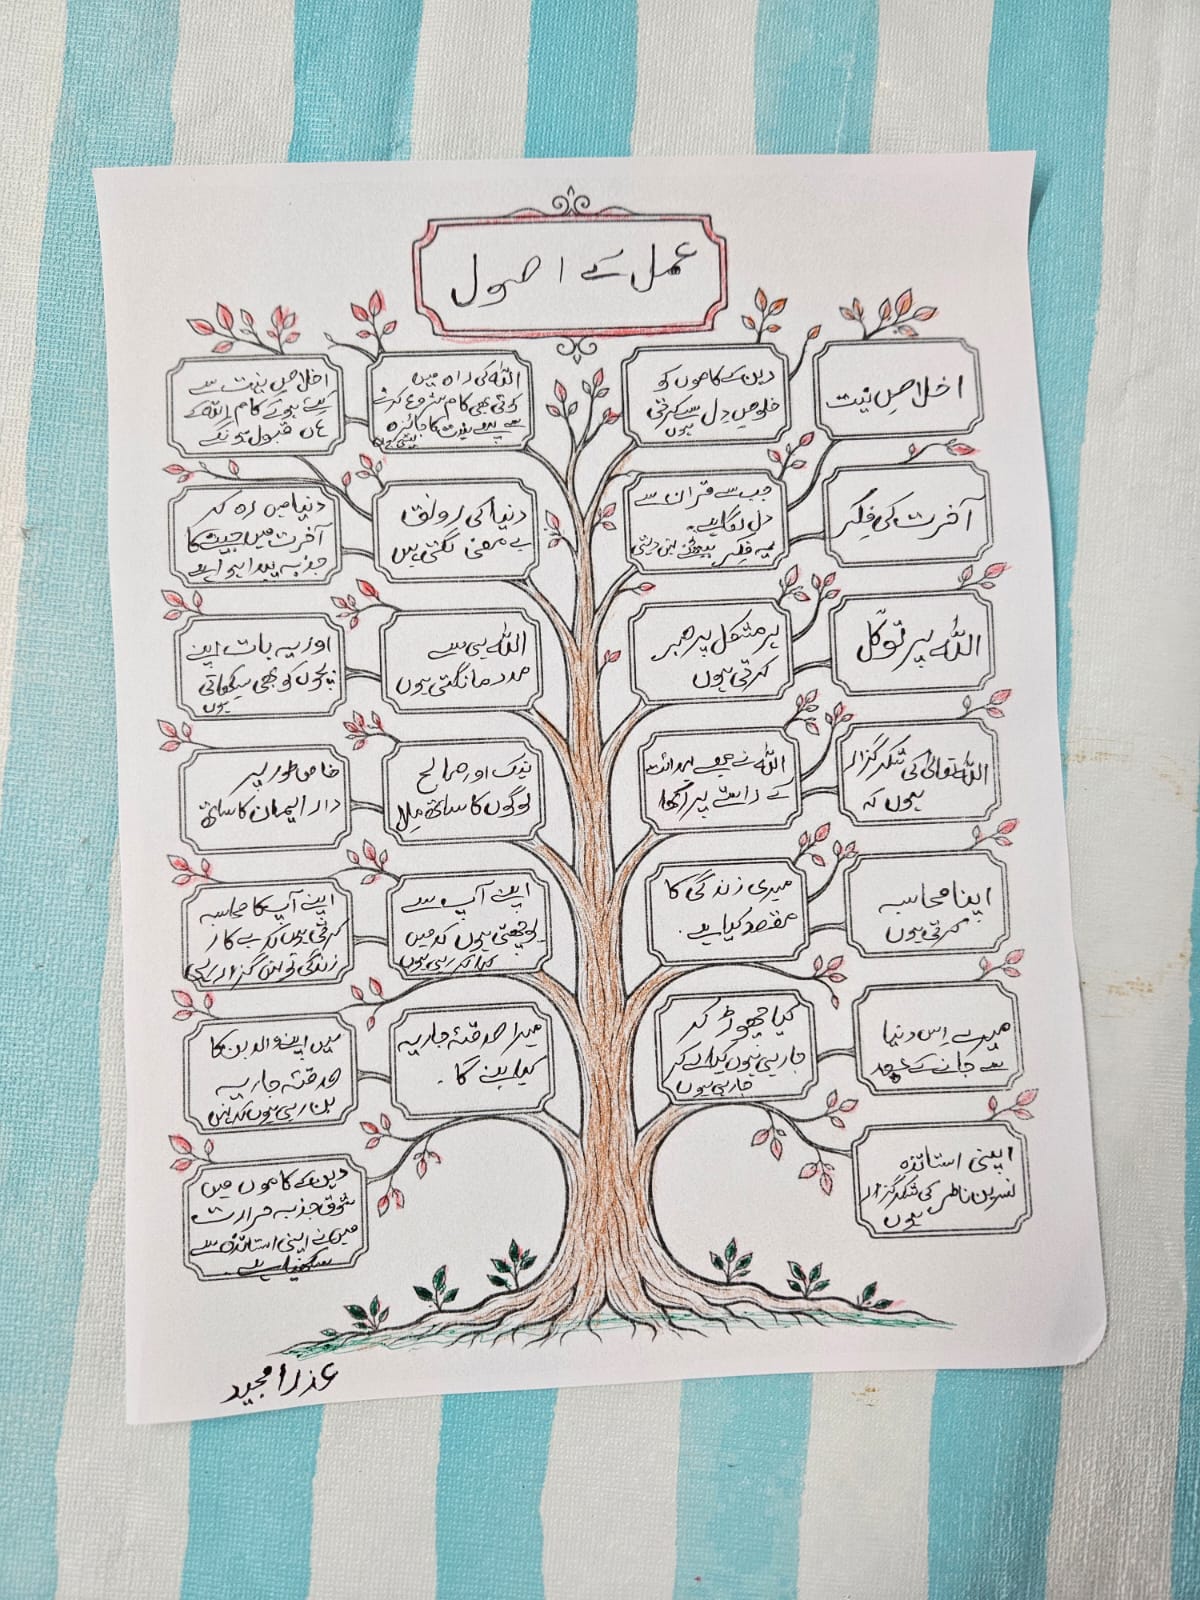 عمل کے اصول
اخلاصِ نیت
دین کے کاموں کو
خلوصِ دِل سے کرتی
ہوں
اللہ کی راہ میں
کوئی بھی کام شروع کرنے
سے پہلے نیت کا جائزہ
اخلاصِ نیت سے
کیے ہوئے کام اللہ کے
ہاں قبول ہونگے
آخرت کی فِکر
جب سے قرآن سے
دل لگایا ہے۔
یہ فِکر نہیں دیتی
دنیا کی رونق
بے معنی لگتی ہیں
دنیا میں رہ کر
آخرت میں جیت کا
جذبہ پیدا ہوا ہے
اللہ پر توّکل
ہر مشکل پر صبر
کرتی ہوں
اللہ ہی سے
مدد مانگتی ہوں
اور یہ بات اپنے
بچوں کو بھی سیکھاتی
ہوں
اللہ تعالیٰ کی شکر گزار
ہوں کہ
اللہ نے مجھے ہدائت
کے راستے پر رکھا
نیک اور صالح
لوگوں کا ساتھ مِلا
خاص طور پر
دار ایمان کا ساتھ
اپنا محاسبہ
کرتی ہوں
میری زندگی کا
مقصد کیا ہے۔
اپنے آپ سے
پوچھتی ہوں کہ میں
کیا کر رہی ہوں
اپنے آپ کا محاسبہ
کرتی ہوں کہ بے کار
زندگی تو نہیں گزار رہی
میرے اِس دنیا
سے جانے کے بعد
کیا چھوڑ کر
جا رہی ہوں کیا لے کر
جا رہی ہوں
میرا صدقۂ جاریہ
کیا بنے گا۔
میں اپنے والدین کا
صدقہ جاریہ
بن رہی ہوں کہ نہیں
اپنی استاتذہ
نسرین ناطر کی شکر گزار
ہوں
دین کے کاموں میں
شوق جذبہ حرارت
میں نے اپنی استاتذہ سے
سیکھا ہے۔
عذرا مجید